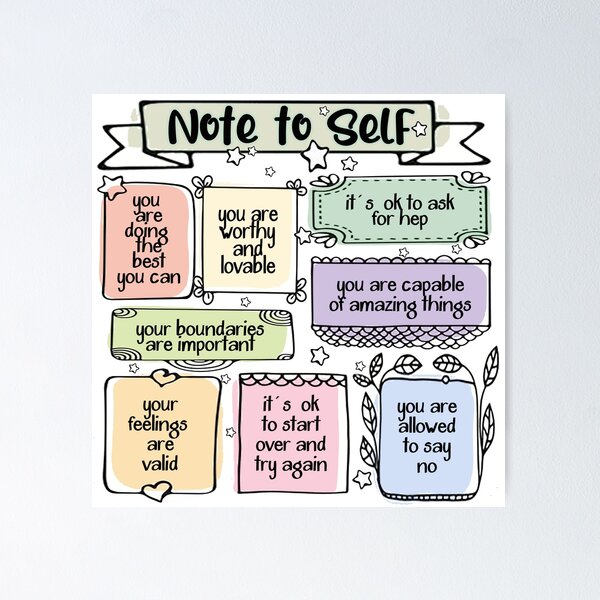 Note to Self
you
are
doing
the
best
you can
you are
worthy
and
lovable
it´s ok to ask
for hep
you are capable
of amazing things
your boundaries
are important
your
feelings
are
valid
it´s ok
to start
over and
try again
you are
allowed
to say
no